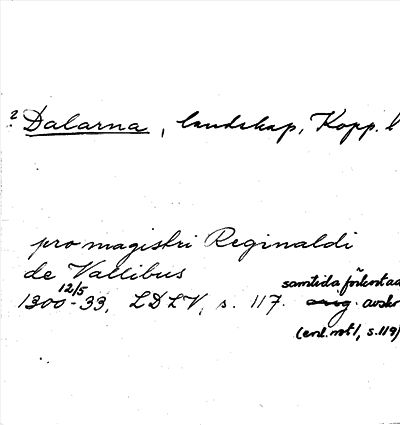 2 Dalarna, landskap, Kopp. l
pro magistri Reginaldi
de Vallibus
samtida förkortad
12/5
1300-33, LDLV, s. 117. orig. avskr
(enl. not 1, s. 119)